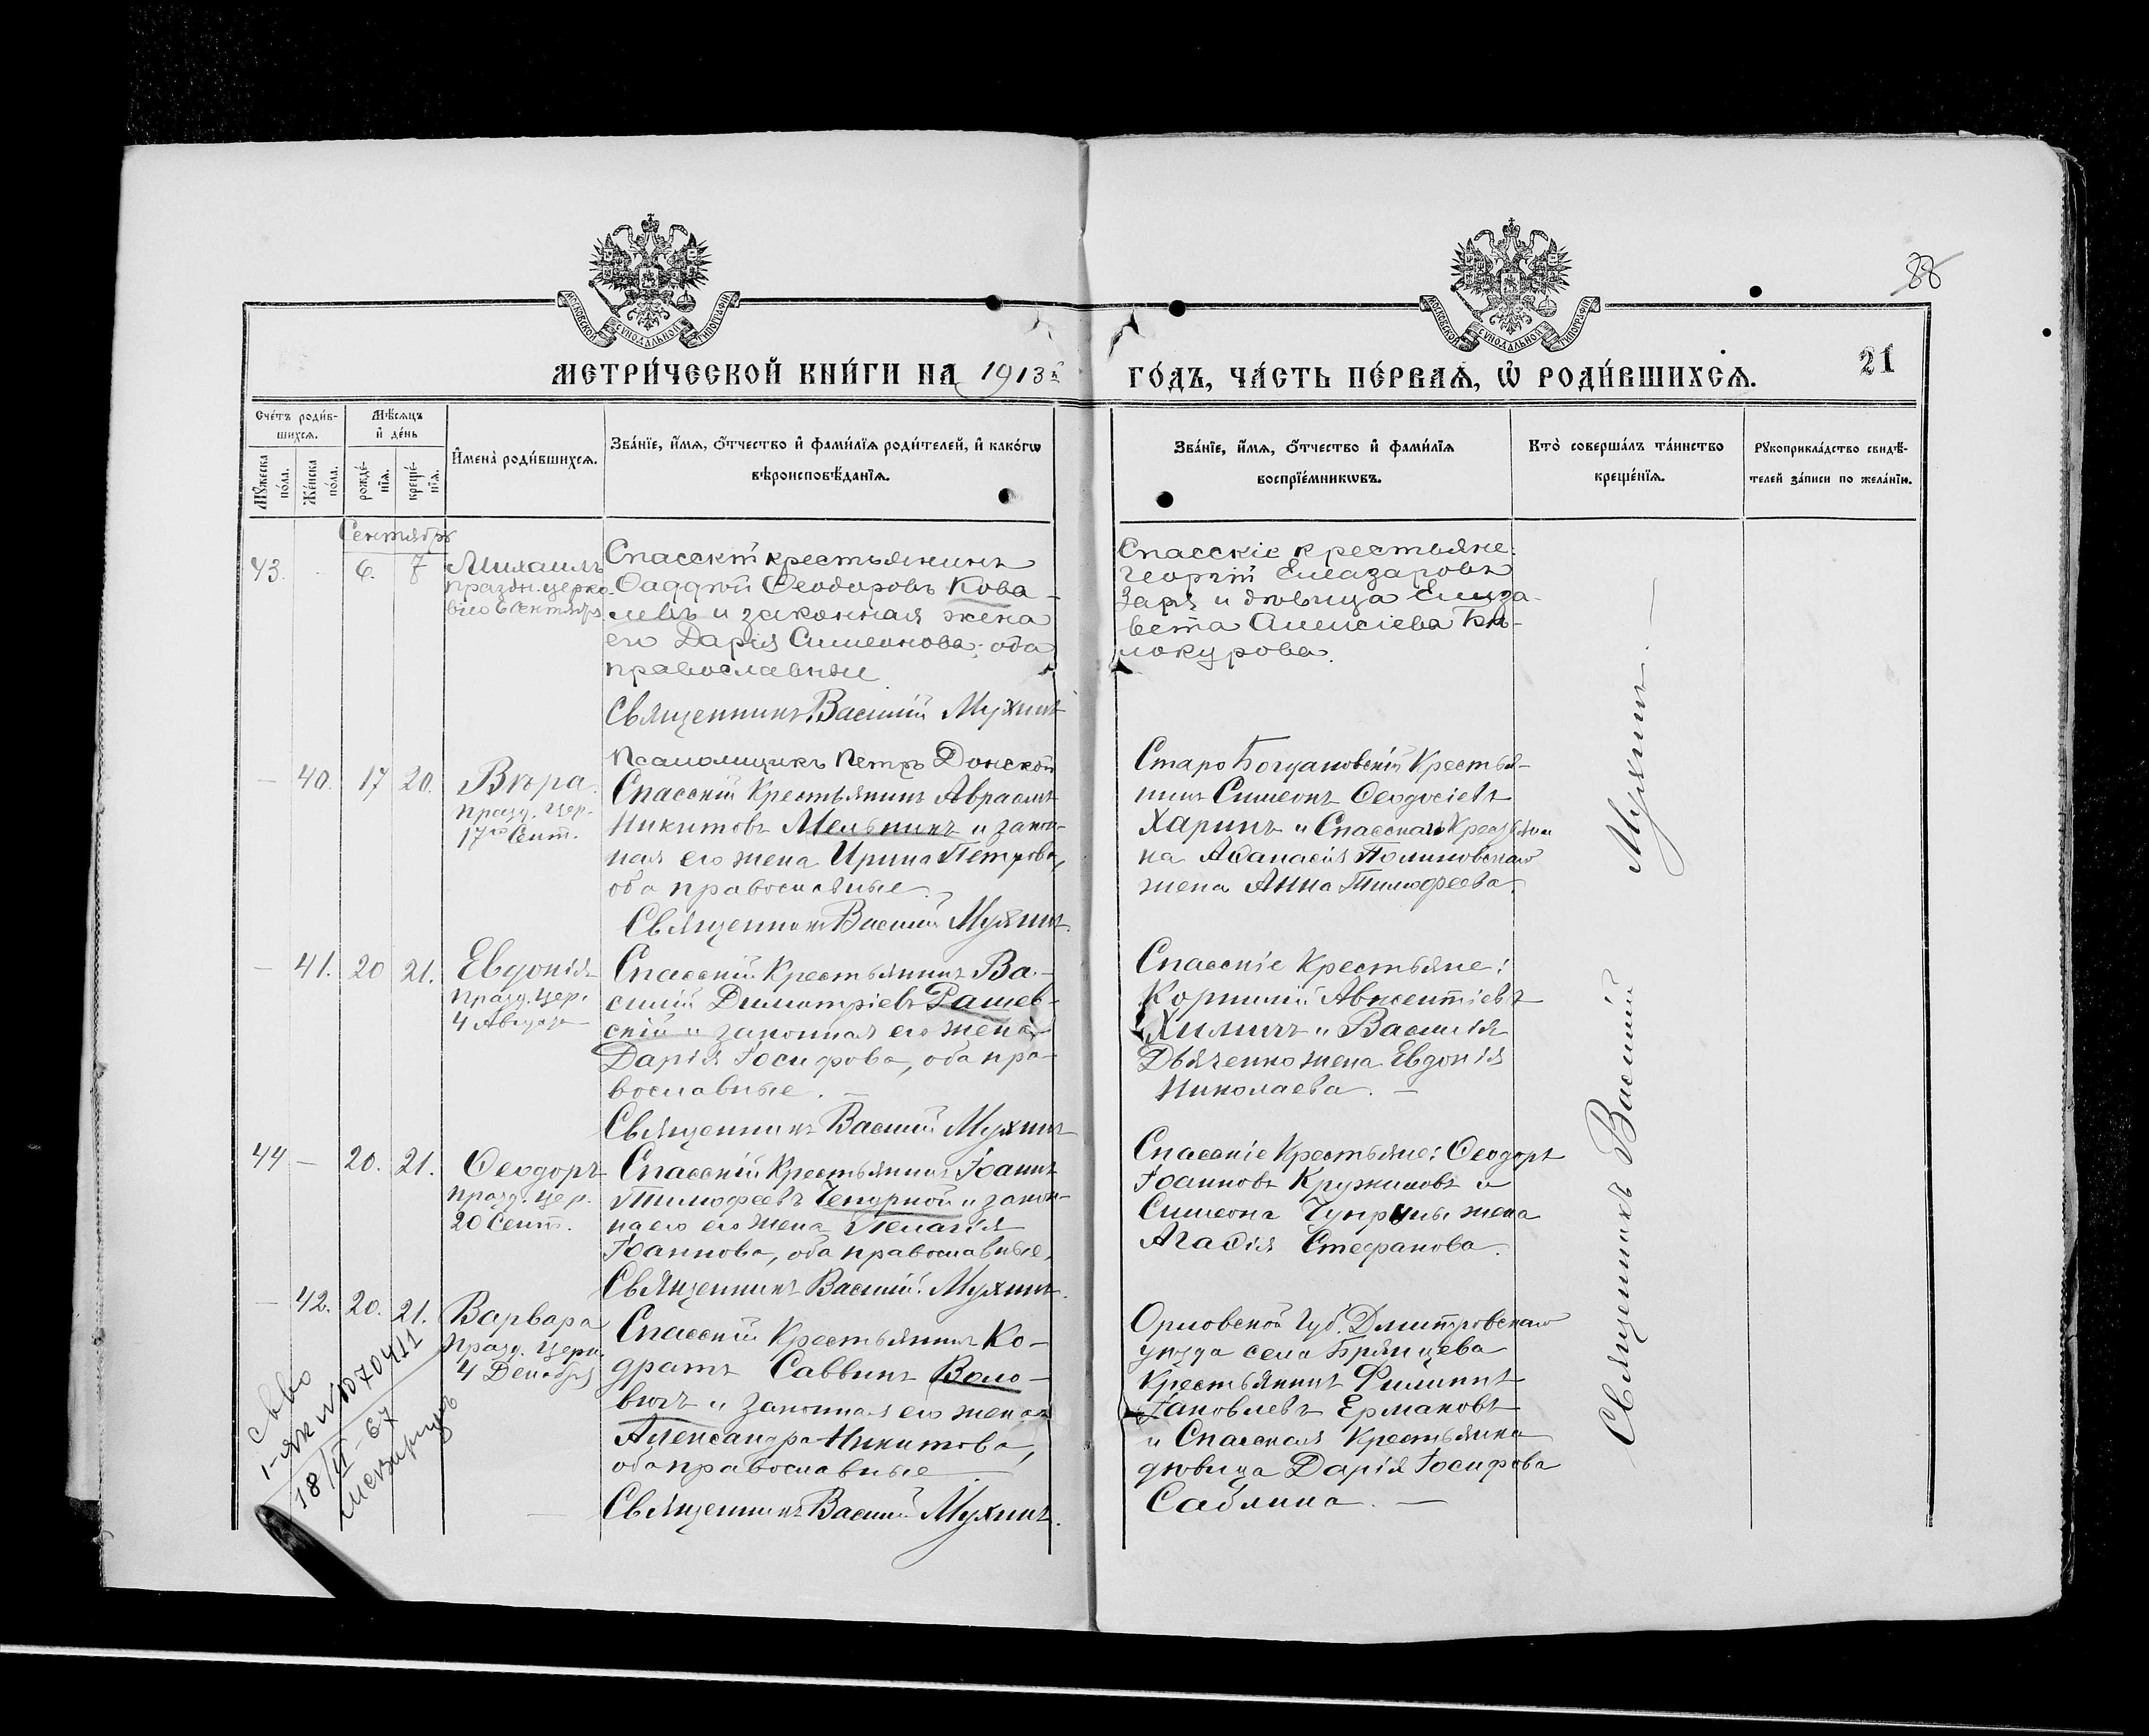 88
21
МОСКОВСКОЙ СѴНОДАЛЬНОЙ ТИПОГРАФІИ
МОСКОВСКОЙ СѴНОДАЛЬНОЙ ТИПОГРАФІИ
МЕТРИ́ЧЕСКОЙ КНИ́ГИ НА 1913й
ГО́ДЪ, ЧА́СТЬ ПЕ́РВАѦ, Ѡ҆ РОДИ́ВШИХСѦ.
Сче́тъ роди́в-
шихсѧ.
Мѣ́сѧцъ
и҆ де́нь
Мꙋ́жеска по́ла.
Же́нска по́ла.
рожде́-нїѧ.
креще́-нїѧ.
И҆мена̀ роди́вшихсѧ.
Зва́нїе, и҆́мѧ, ѻ҆́тчество и҆ фами́лїѧ роди́телей, и҆ како́гѡ
вѣроисповѣ́данїѧ.
Зва́нїе, и҆́мѧ, ѻ҆́тчество и҆ фами́лїѧ
воспрїе́мникѡвъ.
Кто̀ соверша́лъ та́инство
креще́нїѧ.
Рꙋкоприкла́дство свидѣ́-
телей за́писи по жела́нїю.
Сентябрь
43. 6. 7 Михаилъ
праздн. церко-
вью 6 Сентября
Спасскій крестьянинъ
Ѳаддей Ѳеодоровъ Кова-
левъ и законная жена
его Дарія Симеонова; оба
православные
Священникъ Василій Мухинъ
Псаломщикъ Петръ Донской
Спасскіе крестьяне:
Георгій Елеазаровъ
Заря и дѣвица Елиза-
вета Алексіева Бѣ-
локурова.
— 40. 17 20. Вѣра.
празд. цер.
17го Сент.
Спасскій Крестьянинъ Авраамъ
Никитовъ Мельникъ и закон-
ная его жена Ирина Петрова,
оба православные.
Священникъ Василій Мухинъ.
Старо Богдановскій Крестья-
нинъ Симеонъ Ѳеодосіевъ
Харинъ и Спасская Крестьян
ка Аѳанасія Полиновскаго
жена Анна Тимофеева.
— 41. 20 21. Евдокія
празд. цер.
4 Августа
Спасскій Крестьянинъ Ва-
силій Димитріевъ Рашев-
скій и законная его жена
Дарія Іосифова, оба пра-
вославные. —
Священникъ Василій Мухинъ
Спасскіе Крестьяне:
Корнилій Авксентіевъ
Хилычъ и Василія
Дьяченко жена Евдокія
Николаева. —
44 — 20. 21. Ѳеодоръ
празд. цер.
20 Сент.
Спасскій Крестьянинъ Іоаннъ
Тимофеевъ Чепурной и закон-
на его его жена Пелагія
Іоаннова, оба православные.
Священникъ Василій Мухинъ.
Спасскіе Крестьяне: Ѳеодоръ
Іоанновъ Кружиловъ и
Симеона Чуприны жена
Агафія Стефанова.
— 42. 20. 21. Варвара
празд. церк.
4 Декабря
Спасскій Крестьянинъ Ко-
дратъ Саввинъ Воло-
вюкъ и законная его жена
Александра Никитова,
оба православные —
Священникъ Василій Мухинъ.
Орловской Губ. Дмитровскаго
уѣзда села Брянцева
Крестьянинъ Филиппъ
Іаковлевъ Ермаковъ
и Спасская Крестьянка
дѣвица Дарія Іосифова
Саблина. —
Священникъ Василій Мухинъ. —
1-ЯК № 1070411
18/II-67